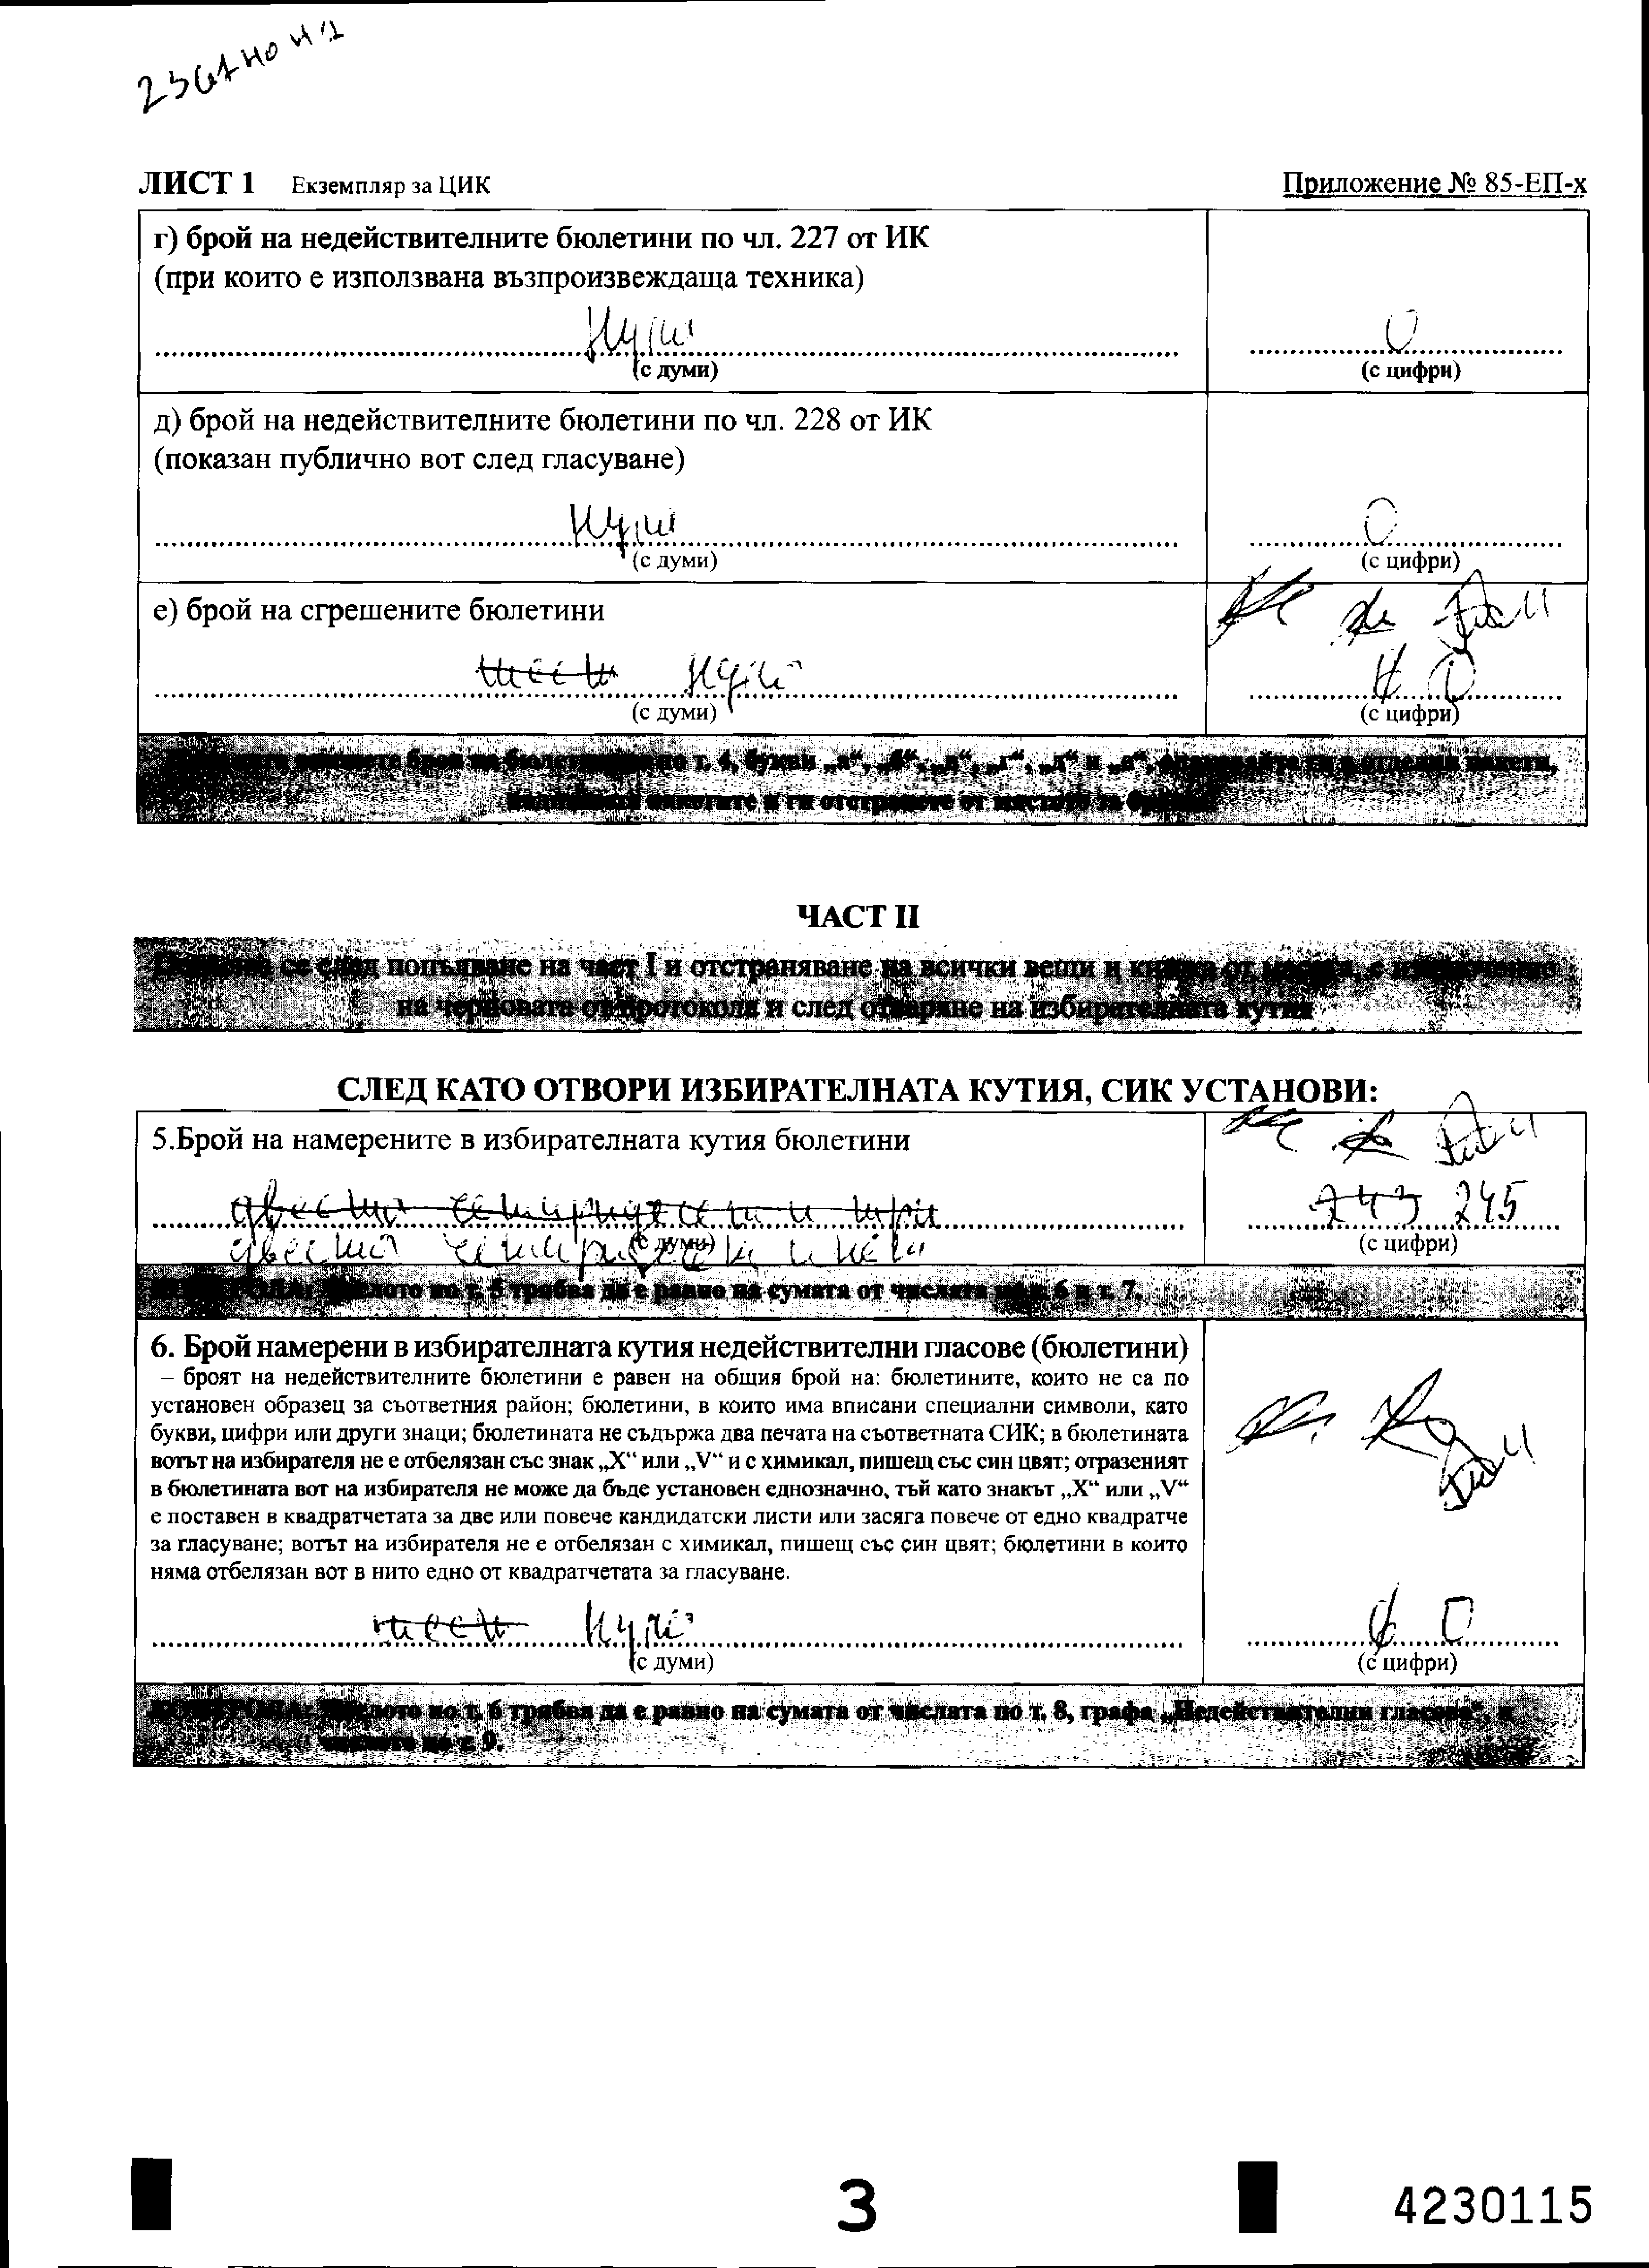 ЛИСТ 1 Екземпляр за ЦИК Приложение № 85-ЕП-х
г) брой на недействителните бюлетини по чл. 227 от ИК
(при които е използвана възпроизвеждаща техника)
нули 0
(с думи) (с цифри)
д) брой на недействителните бюлетини по чл. 228 от ИК
(показан публично вот след гласуване)
нули 0
(с думи) (с цифри)
е) брой на сгрешените бюлетини
нули 0
(с думи) (с цифри)
по т. 4, букви „а“, „б“, „в“, „г“, „д“ и „е“,
ЧАСТ II
се след попълване на част I и отстраняване на всички вещи и книжа от
на черновата от протокола и след отваряне на избирателната кутия
СЛЕД КАТО ОТВОРИ ИЗБИРАТЕЛНАТА КУТИЯ, СИК УСТАНОВИ:
5.Брой на намерените в избирателната кутия бюлетини
двеста четиридесети и три 243 245
(с думи) (с цифри)
двеста четиридесети и пет
Числото по т. 5 трябва да е равно на сумата от числата по т. 6 и т. 7.
6. Брой намерени в избирателната кутия недействителни гласове (бюлетини)
– броят на недействителните бюлетини е равен на общия брой на: бюлетините, които не са по
установен образец за съответния район; бюлетини, в които има вписани специални символи, като
букви, цифри или други знаци; бюлетината не съдържа два печата на съответната СИК; в бюлетината
вотът на избирателя не е отбелязан със знак „X“ или „V“ и с химикал, пишещ със син цвят; отразеният
в бюлетината вот на избирателя не може да бъде установен еднозначно, тъй като знакът „X“ или „V“
е поставен в квадратчетата за две или повече кандидатски листи или засяга повече от едно квадратче
за гласуване; вотът на избирателя не е отбелязан с химикал, пишещ със син цвят; бюлетини в които
няма отбелязан вот в нито едно от квадратчетата за гласуване.
нули 0
(с думи) (с цифри)
Числото по т. 6 трябва да е равно на сумата от числата по т. 8, графа „Недействителни гласове“, и
числото по т. 9.
3 4230115